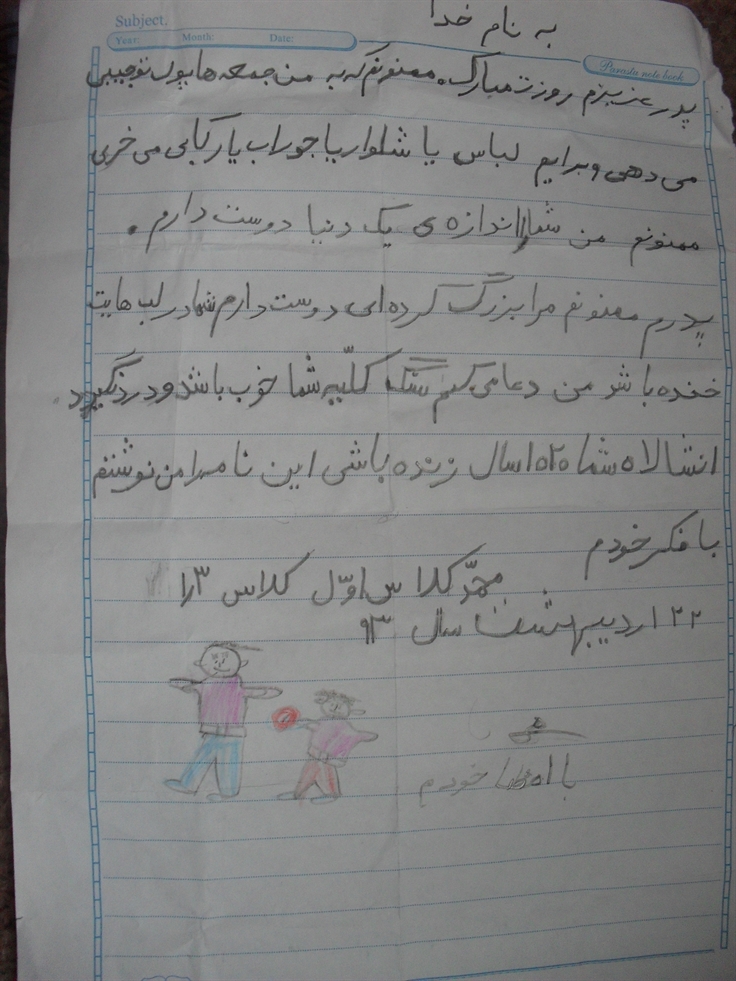 Subject.
Year: Month: Date:
به نام خدا
Parasta note book
پدر عزیزم روزت مبارک. ممنونم که به من جمعه ها پول توجیبی
می دهی و برایم لباس یا شلوار یا جوراب یا رکابی می خری
ممنونم من شما را اندازه ی یک دنیا دوست دارم.
پدرم ممنونم مرا بزرگ کرده ای دوست دارم شما در لب هایت
خنده باشد من دعا می کنم سنگ کلّیه شما خوب باشد و درد نگیرد.
انشالاه شما ۱۵۲۰ سال زنده باشی این نامه را من نوشتم
با فکر خودم
محمّد کلاس اوّل کلاس ۳را
۲۲ اردیبهشت سال ۹۳
با خودم